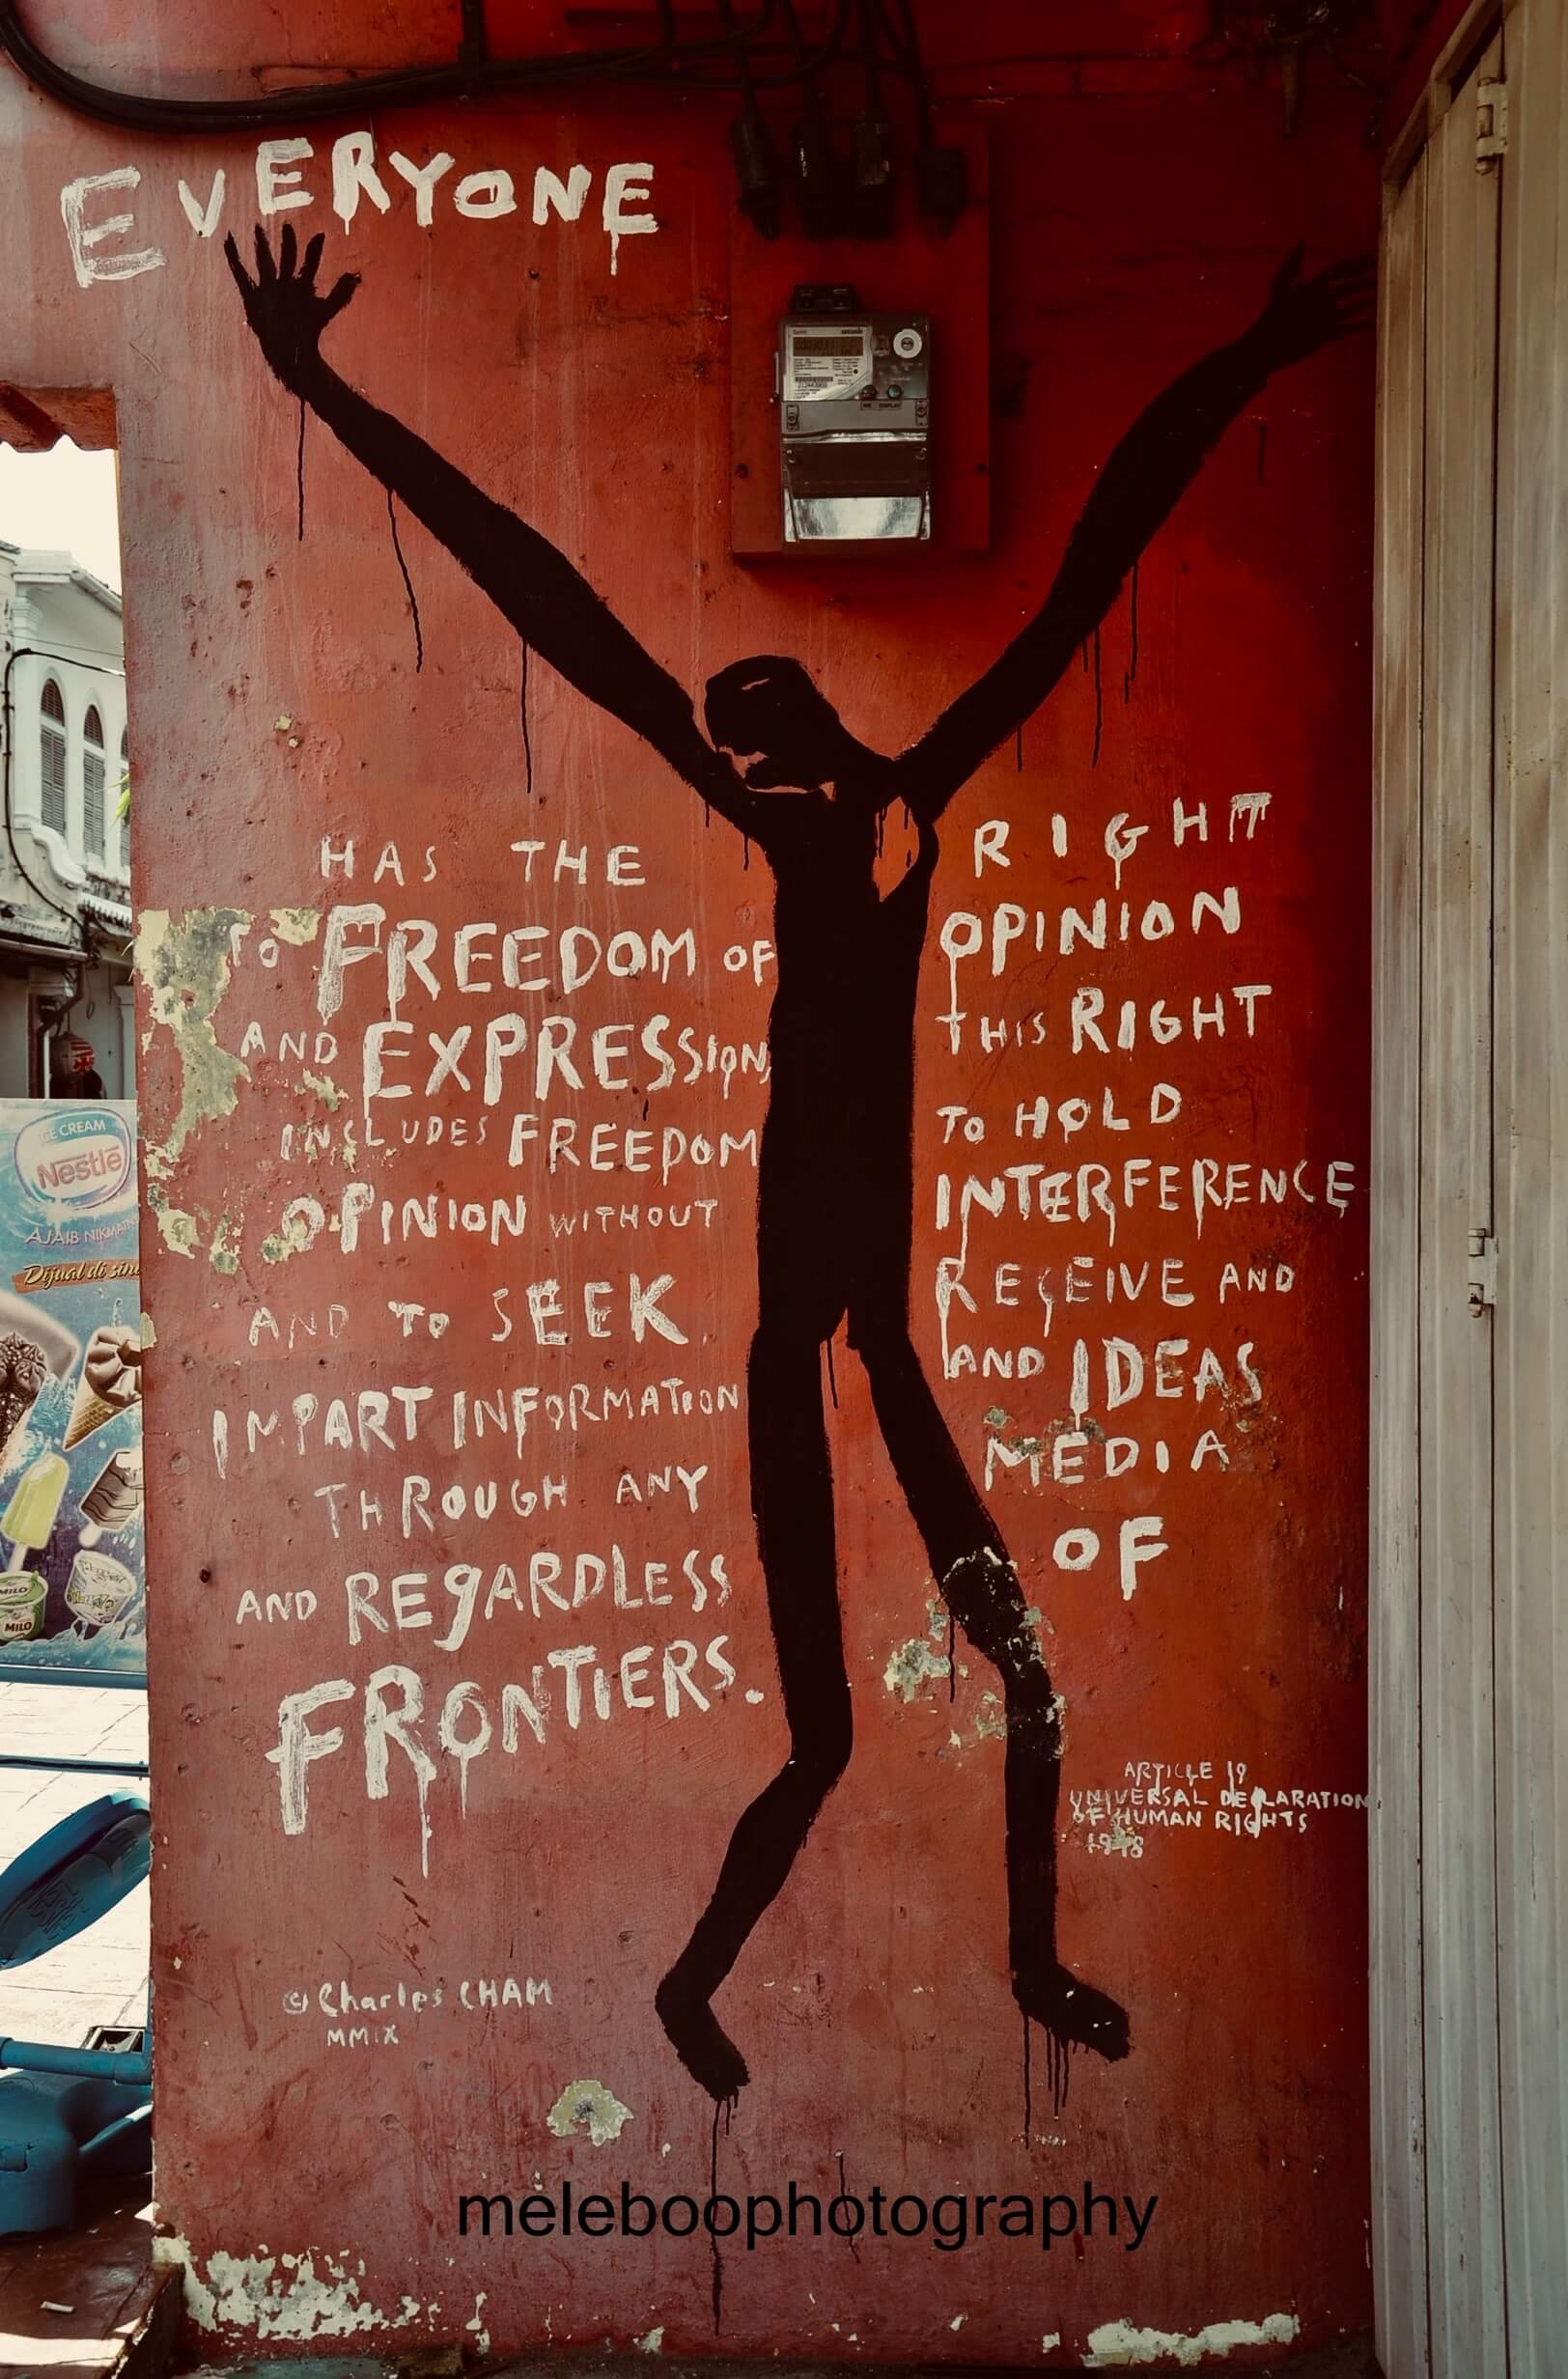 EVERYONE
HAS THE RIGHT
TO FREEDOM OF OPINION
AND EXPRESSION, THIS RIGHT
INCLUDES FREEDOM TO HOLD
OPINION WITHOUT INTERFERENCE
AND TO SEEK RECEIVE AND
IMPART INFORMATION AND IDEAS
THROUGH ANY MEDIA
AND REGARDLESS OF
FRONTIERS.
ARTICLE 19
UNIVERSAL DECLARATION
OF HUMAN RIGHTS
1948
© Charles CHAM
MMIX
ICE CREAM
Nestlé
AJAIB NIKMAT
Dijual di sini
MILO
MILO
meleboophotography